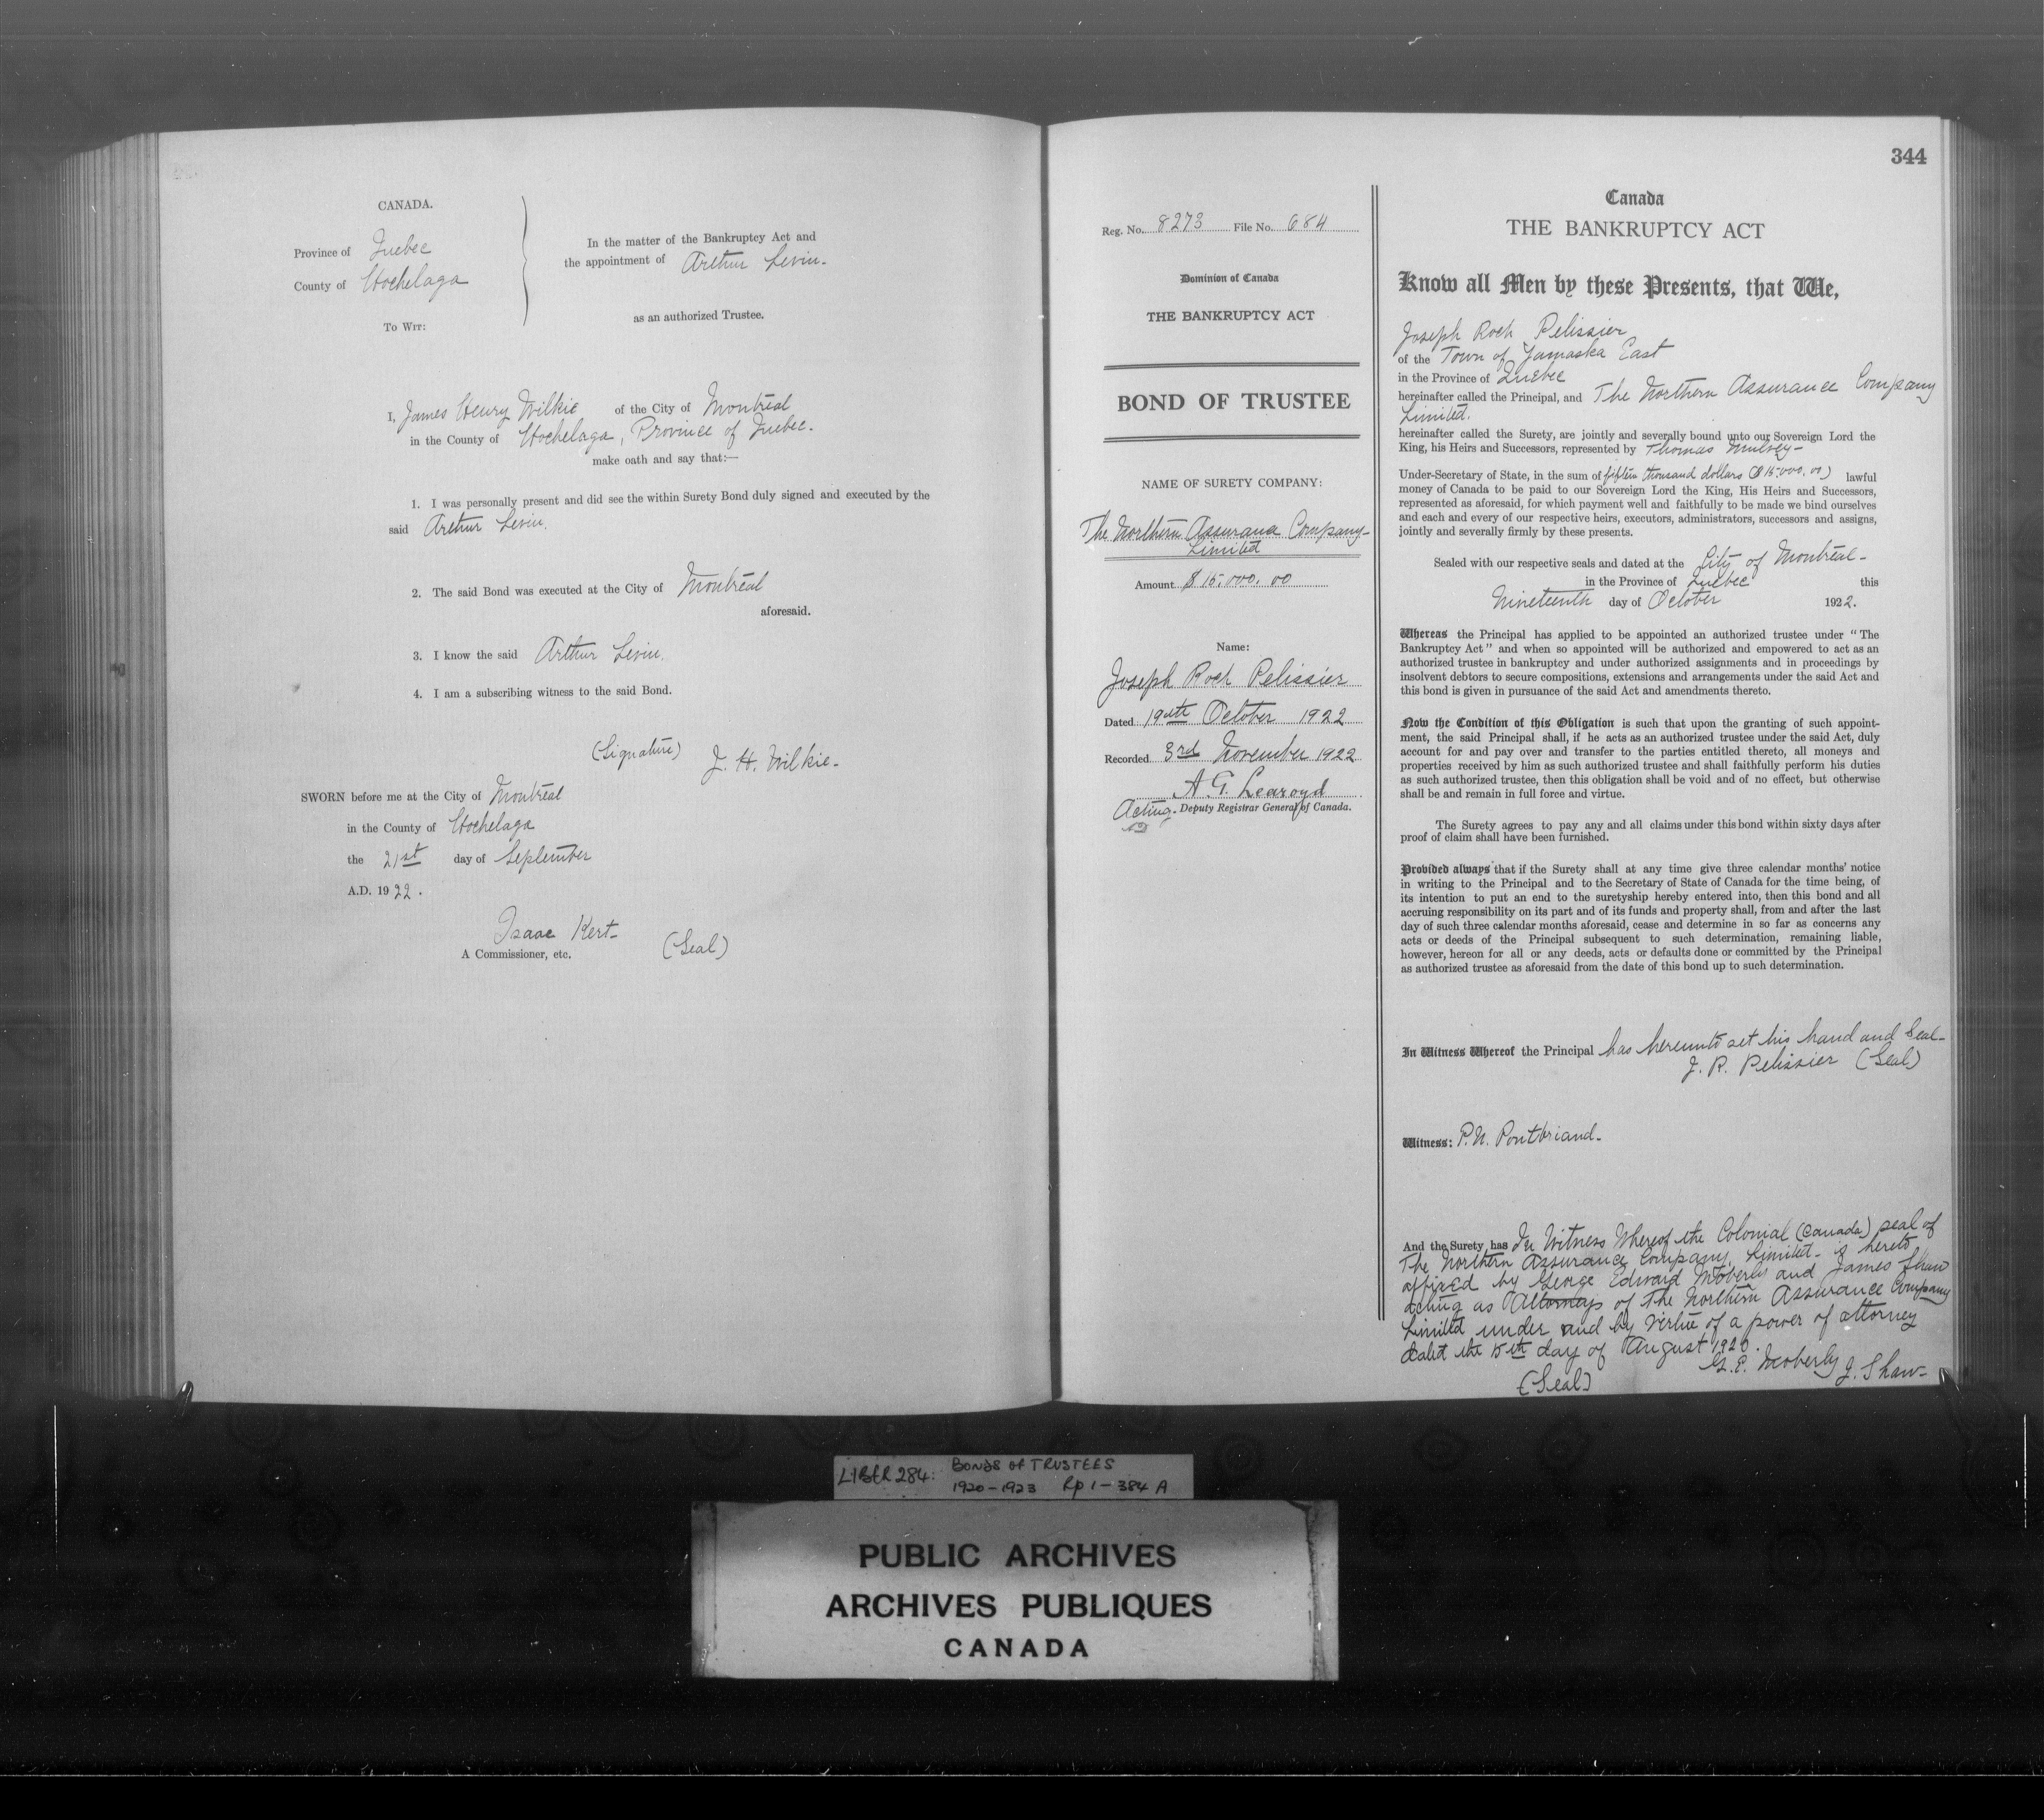 CANADA.
Province of Quebec
County of Hochelaga
To Wit:
In the matter of the Bankruptcy Act and
the appointment of Arthur Levin.
as an authorized Trustee.
I, James Henry Wilkie of the City of Montreal
in the County of Hochelaga, Province of Quebec.
make oath and say that:—
1. I was personally present and did see the within Surety Bond duly signed and executed by the
said Arthur Levin.
2. The said Bond was executed at the City of Montreal
aforesaid.
3. I know the said Arthur Levin.
4. I am a subscribing witness to the said Bond.
(Signature) J. H. Wilkie.
SWORN before me at the City of Montreal
in the County of Hochelaga
the 21st day of September
A.D. 1922.
Isaac Kert
A Commissioner, etc. (Seal)
Reg. No. 8273 File No. 684
Dominion of Canada
THE BANKRUPTCY ACT
BOND OF TRUSTEE
NAME OF SURETY COMPANY:
The Northern Assurance Company
Limited
Amount $15.000.00
Name:
Joseph Roch Pelissier
Dated 19th October 1922
Recorded 3rd November 1922
A. G. Learoyd
Acting Deputy Registrar General of Canada.
344
Canada
THE BANKRUPTCY ACT
Know all Men by these Presents, that We,
Joseph Roch Pelissier
of the Town of Yamaska East
in the Province of Quebec
hereinafter called the Principal, and The Northern Assurance Company
Limited.
hereinafter called the Surety, are jointly and severally bound unto our Sovereign Lord the
King, his Heirs and Successors, represented by Thomas Mulvey-
Under-Secretary of State, in the sum of fifteen thousand dollars ($15.000.00) lawful
money of Canada to be paid to our Sovereign Lord the King, His Heirs and Successors,
represented as aforesaid, for which payment well and faithfully to be made we bind ourselves
and each and every of our respective heirs, executors, administrators, successors and assigns,
jointly and severally firmly by these presents.
Sealed with our respective seals and dated at the City of Montreal-
in the Province of Quebec this
Nineteenth day of October 1922.
Whereas the Principal has applied to be appointed an authorized trustee under "The
Bankruptcy Act" and when so appointed will be authorized and empowered to act as an
authorized trustee in bankruptcy and under authorized assignments and in proceedings by
insolvent debtors to secure compositions, extensions and arrangements under the said Act and
this bond is given in pursuance of the said Act and amendments thereto.
Now the Condition of this Obligation is such that upon the granting of such appoint-
ment, the said Principal shall, if he acts as an authorized trustee under the said Act, duly
account for and pay over and transfer to the parties entitled thereto, all moneys and
properties received by him as such authorized trustee and shall faithfully perform his duties
as such authorized trustee, then this obligation shall be void and of no effect, but otherwise
shall be and remain in full force and virtue.
The Surety agrees to pay any and all claims under this bond within sixty days after
proof of claim shall have been furnished.
Provided always that if the Surety shall at any time give three calendar months' notice
in writing to the Principal and to the Secretary of State of Canada for the time being, of
its intention to put an end to the suretyship hereby entered into, then this bond and all
accruing responsibility on its part and of its funds and property shall, from and after the last
day of such three calendar months aforesaid, cease and determine in so far as concerns any
acts or deeds of the Principal subsequent to such determination, remaining liable,
however, hereon for all or any deeds, acts or defaults done or committed by the Principal
as authorized trustee as aforesaid from the date of this bond up to such determination.
In Witness Whereof the Principal has hereunto set his hand and Seal-
J. R. Pelissier (Seal)
Witness: P.N. Pontbriand-
And the Surety has In Witness Whereof the Colonial (Canada) seal of
The Northern Assurance Company, Limited- is hereto
affixed by George Edward Moberly and James Shaw
acting as Attorneys of The Northern Assurance Company
Limited under and by virtue of a power of attorney
dated the 15th day of August 1920.
G. E. Moberly J. Shaw-
(Seal)
LIBER 284: BONDS OF TRUSTEES
1920-1923 Rp 1-384 A
PUBLIC ARCHIVES
ARCHIVES PUBLIQUES
CANADA